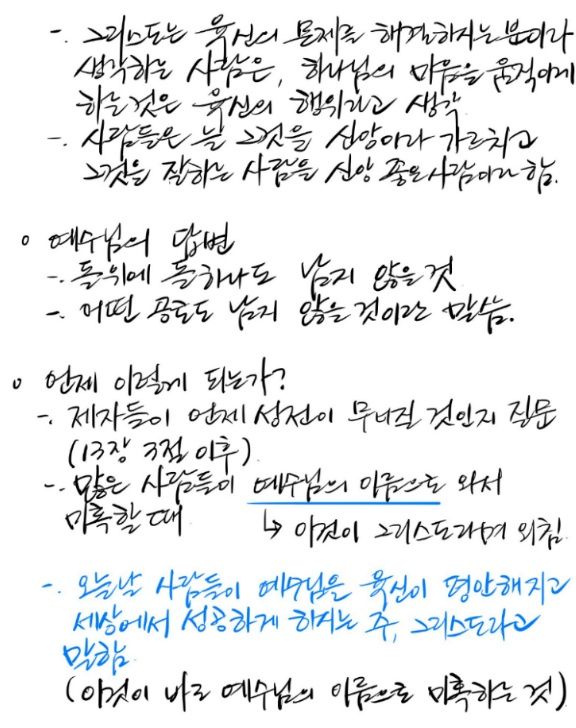 -. 그리스도는 육신의 문제를 해결하시는 분이라
생각하는 사람은, 하나님의 마음을 움직이게
하는 것은 육신의 행위라고 생각
-. 사람들은 늘 그것을 신앙이라 가르치고
그것을 잘하는 사람을 신앙 좋은 사람이라 함.
○ 예수님의 답변
-. 돌 위에 돌 하나도 남지 않을 것
-. 어떤 공로도 남지 않을 것이라는 말씀.
○ 언제 이렇게 되는가?
-. 제자들이 언제 성전이 무너질 것인지 질문
(13장 3절 이후)
-. 많은 사람들이 예수님의 이름으로 와서
미혹할 때
↳ 이것이 그리스도라며 외침
-. 오늘날 사람들이 예수님을 육신이 평안해지고
세상에서 성공하게 하시는 주, 그리스도라고
말함
(이것이 바로 예수님의 이름으로 미혹하는 것)